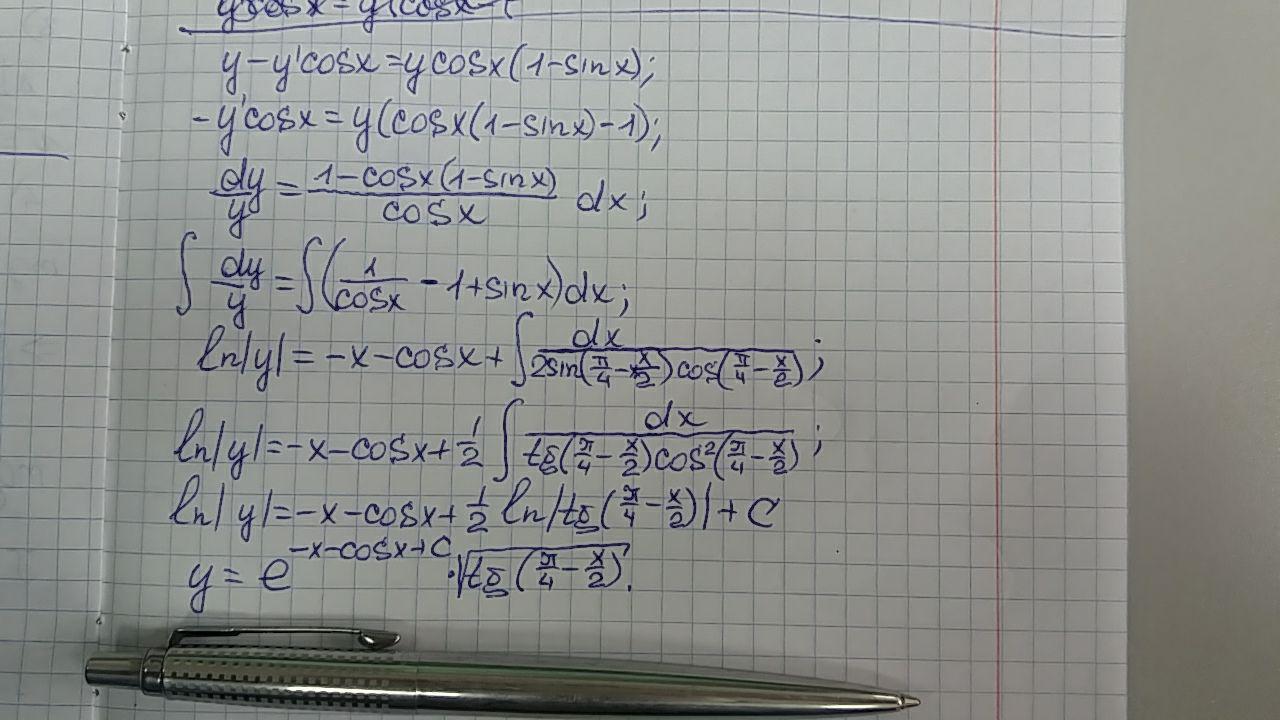 y - y'cosx = ycosx(1-sinx);
-y'cosx = y(cosx(1-sinx)-1);
dy/y = (1-cosx(1-sinx))/cosx dx;
∫ dy/y = ∫(1/cosx - 1+sinx)dx;
ln|y| = -x-cosx+∫ dx/(2sin(π/4-x/2)cos(π/4-x/2));
ln|y|=-x-cosx+1/2 ∫ dx/(tg(π/4-x/2)cos²(π/4-x/2));
ln|y|=-x-cosx+1/2 ln|tg(π/4-x/2)|+C
y = e^(-x-cosx+C)·√(tg(π/4-x/2)).